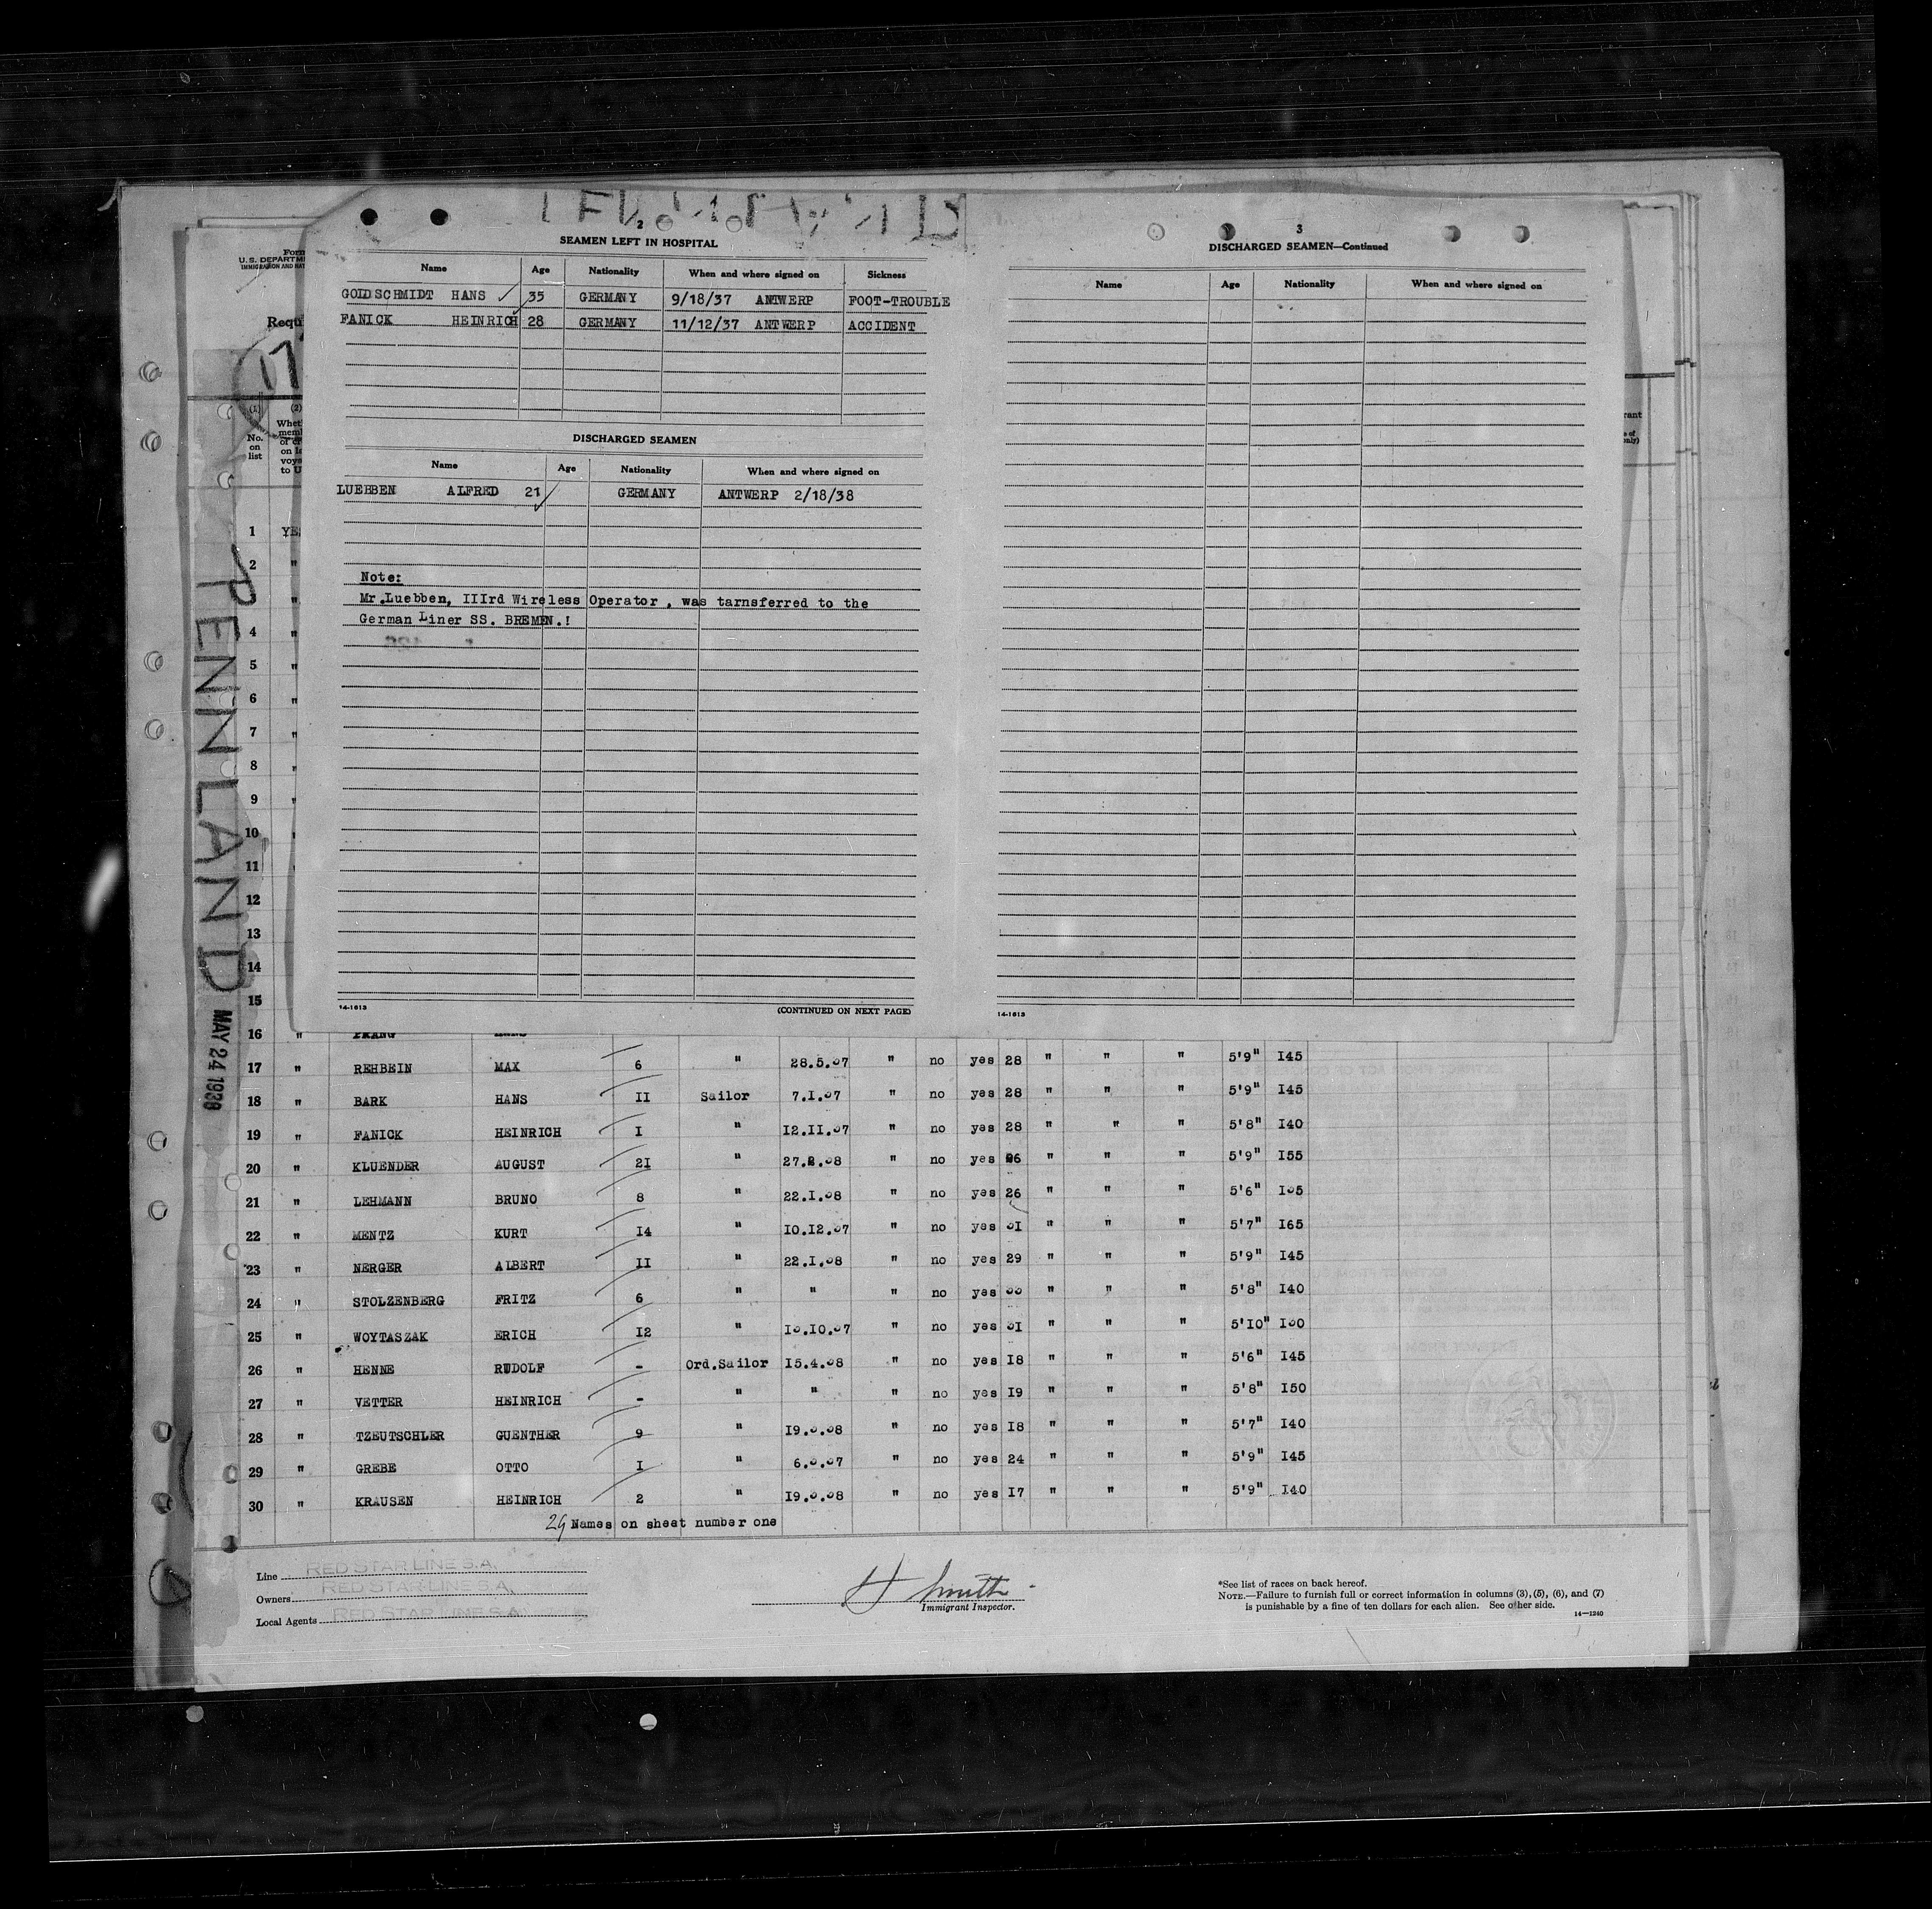 2
SEAMEN LEFT IN HOSPITAL
Name Age Nationality When and where signed on Sickness
GOLDSCHMIDT HANS 35 GERMANY 9/18/37 ANTWERP FOOT-TROUBLE
FANICK HEINRICH 28 GERMANY 11/12/37 ANTWERP ACCIDENT
DISCHARGED SEAMEN
Name Age Nationality When and where signed on
LUEBBEN ALFRED 21 GERMANY ANTWERP 2/18/38
Note:
Mr.Luebben, IIIrd Wireless Operator, was tarnsferred to the
German Liner SS. BREMEN.!
14-1613 (CONTINUED ON NEXT PAGE)
3
DISCHARGED SEAMEN—Continued
Name Age Nationality When and where signed on
14-1613
Form
U.S. DEPARTM
IMMIGRATION AND NAT
Requi
17
(1) (2)
No. on list
Whet
memb
of cr
on la
voya
to U
PENNLAND
MAY 24 1938
1 YES
2 "
3 "
4 "
5 "
6 "
7 "
8 "
9 "
10
11
12
13
14
15
16 " PRANG HANS
17 " REHBEIN MAX 6 " 28.5.07 " no yes 28 " " " 5'9" I45
18 " BARK HANS II Sailor 7.I.07 " no yes 28 " " " 5'9" I45
19 " FANICK HEINRICH I " I2.II.07 " no yes 28 " " " 5'8" I40
20 " KLUENDER AUGUST 2I " 27.2.08 " no yes 26 " " " 5'9" I55
21 " LEHMANN BRUNO 8 " 22.I.08 " no yes 26 " " " 5'6" I35
22 " MENTZ KURT I4 " I0.I2.07 " no yes 3I " " " 5'7" I65
23 " NERGER ALBERT II " 22.I.08 " no yes 29 " " " 5'9" I45
24 " STOLZENBERG FRITZ 6 " " " no yes 30 " " " 5'8" I40
25 " WOYTASZAK ERICH I2 " I0.I0.07 " no yes 3I " " " 5'10" I60
26 " HENNE RUDOLF - Ord.Sailor I5.4.08 " no yes I8 " " " 5'6" I45
27 " VETTER HEINRICH - " " " no yes I9 " " " 5'8" I50
28 " TZEUTSCHLER GUENTHER 9 " I9.3.08 " no yes I8 " " " 5'7" I40
29 " GREBE OTTO I " 6.3.07 " no yes 24 " " " 5'9" I45
30 " KRAUSEN HEINRICH 2 " I9.3.08 " no yes I7 " " " 5'9" I40
29 Names on sheet number one
Line RED STAR LINE S.A.
Owners RED STAR LINE S.A.
Local Agents RED STAR LINE S.A.
H Smith
Immigrant Inspector.
*See list of races on back hereof.
NOTE.—Failure to furnish full or correct information in columns (3), (5), (6), and (7)
is punishable by a fine of ten dollars for each alien. See other side.
14—1240